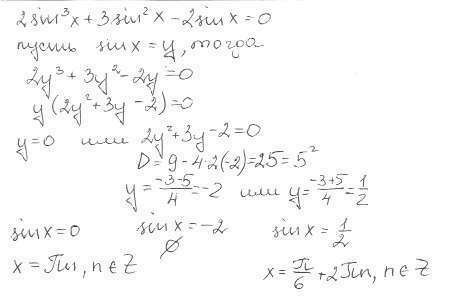 2sin³x + 3sin²x - 2sinx = 0
пусть sinx = y, тогда
2y³ + 3y² - 2y = 0
y(2y² + 3y - 2) = 0
y = 0 или 2y² + 3y - 2 = 0
D = 9 - 4·2(-2) = 25 = 5²
y = (-3-5)/4 = -2 или y = (-3+5)/4 = 1/2
sinx = 0 sinx = -2 sinx = 1/2
∅
x = πn, n ∈ Z x = π/6 + 2πn, n ∈ Z